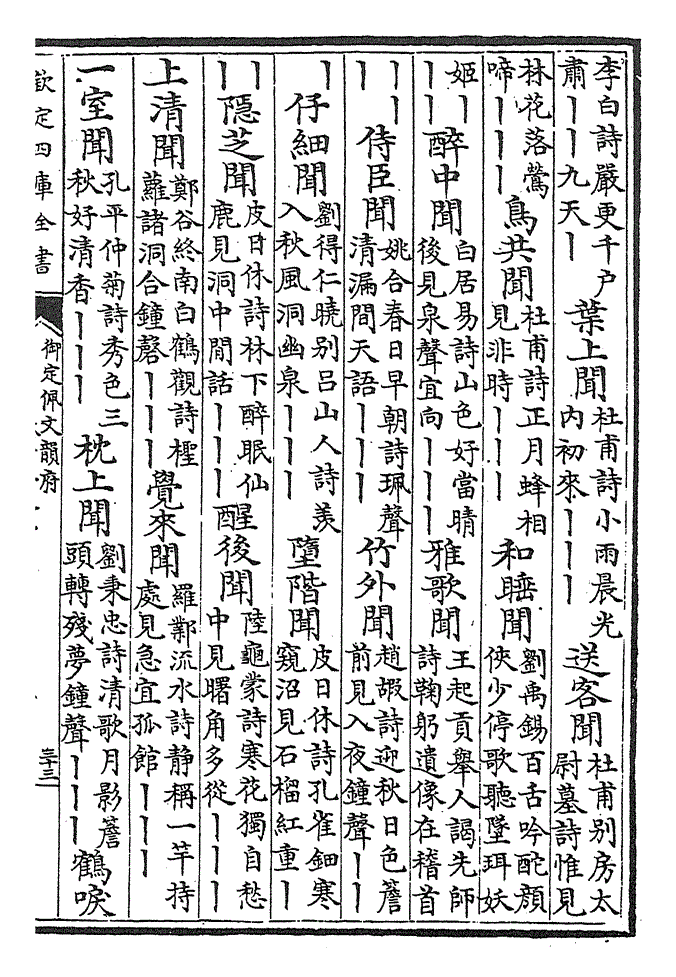 李白詩嚴更千户肅丨丨九天丨 葉上聞 杜甫詩小雨晨光内初來丨丨丨 送客聞 杜甫别房太尉墓詩惟見
林花落鶯啼丨丨丨 鳥共聞 杜甫詩正月蜂相見非時丨丨丨 和睡聞 劉禹錫百舌吟酡顔俠少停歌聽墜珥妖
姬丨丨丨 醉中聞 白居易詩山色好當晴後見泉聲宜向丨丨丨 雅歌聞 王起貢舉人謁先師詩鞠躬遺像在稽首
丨丨丨 侍臣聞 姚合春日早朝詩珮聲清漏間天語丨丨丨 竹外聞 趙嘏詩迎秋日色簷前見入夜鐘聲丨丨
丨 仔細聞 劉得仁曉别吕山人詩羨入秋風洞幽泉丨丨丨 墮階聞 皮日休詩孔雀鈿寒窺沼見石榴紅重丨
丨丨 隱芝聞 皮日休詩林下醉眠仙鹿見洞中閒話丨丨丨 醒後聞 陸龜蒙詩寒花獨自愁中見曙角多從丨丨丨
上清聞 鄭谷終南白鶴觀詩檉蘿諸洞合鐘磬丨丨丨 覺來聞 羅鄴流水詩静稱一竿持處見急宜孤館丨丨丨
一室聞 孔平仲菊詩秀色三秋好清香丨丨丨 枕上聞 劉秉忠詩清歌月影簷頭轉殘夢鐘聲丨丨丨 鶴唳
欽定四庫全書 御定佩文韻府 三十三